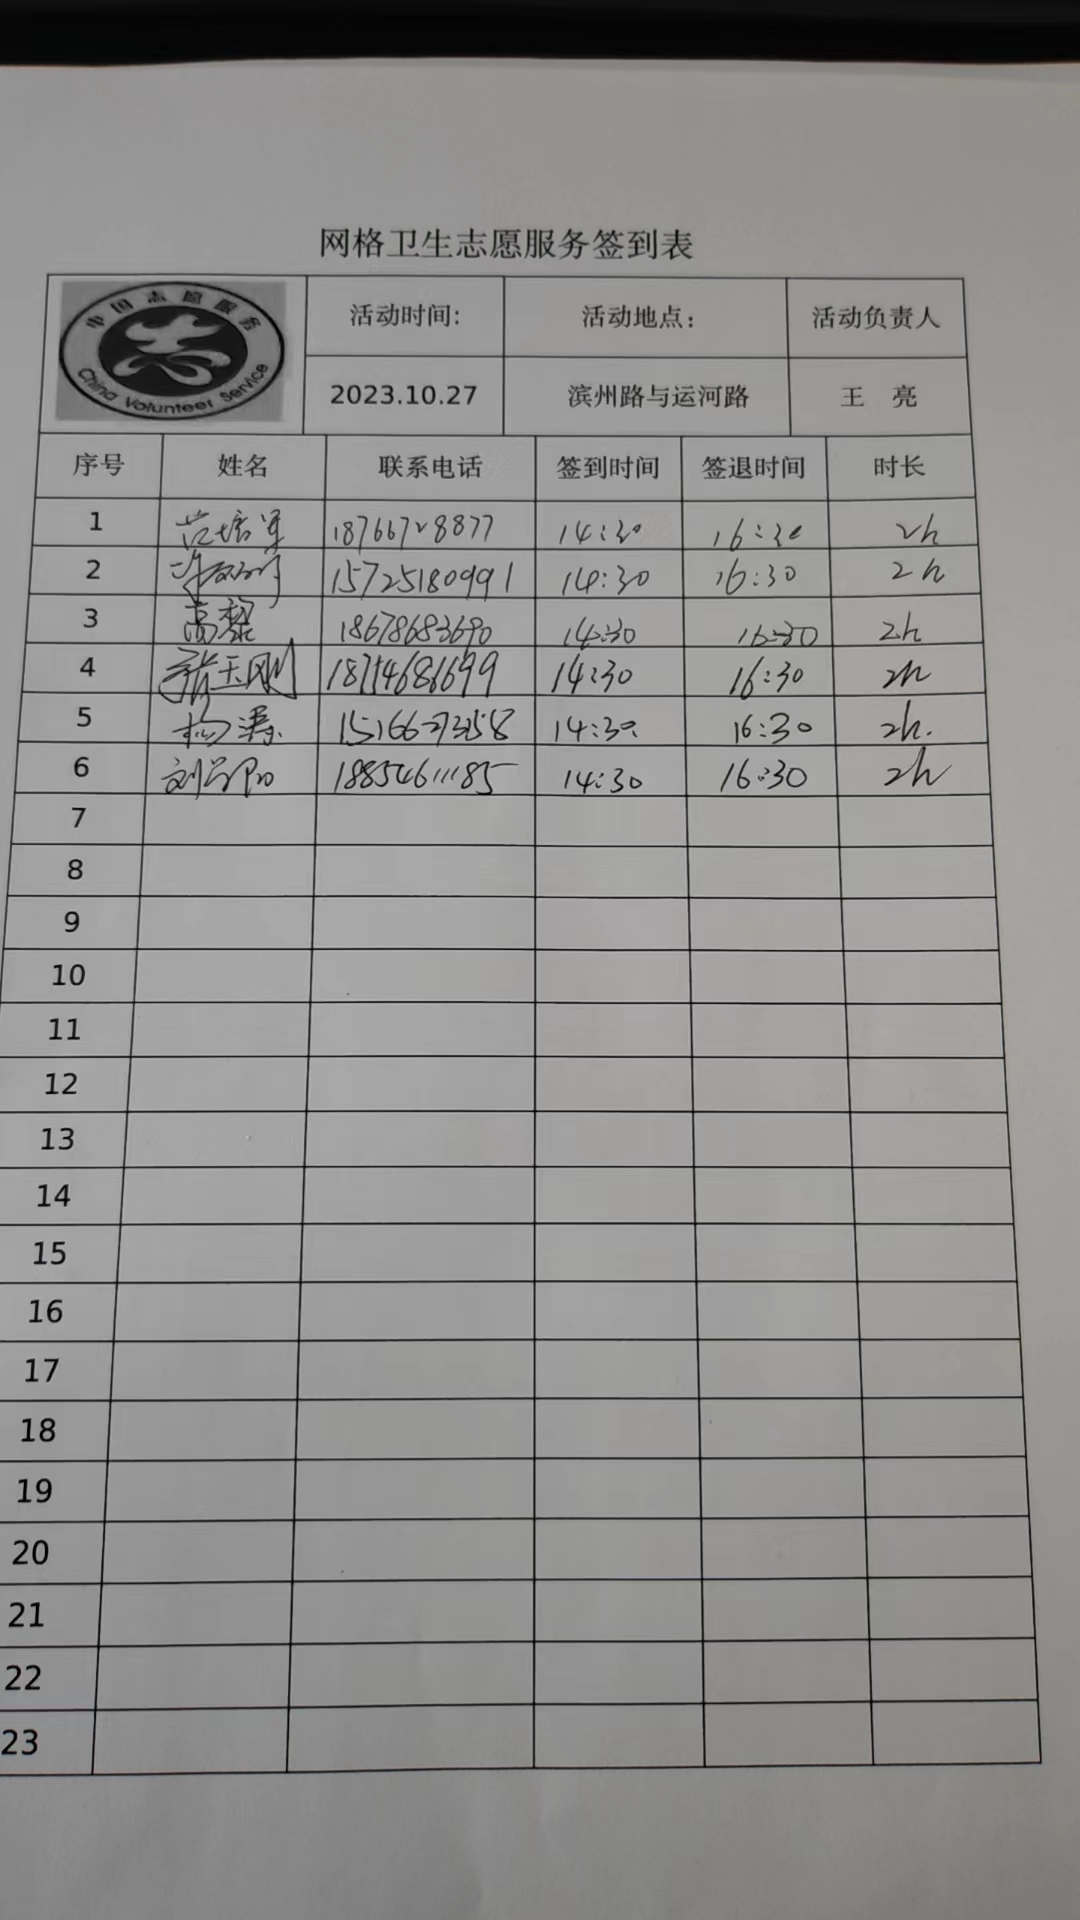 网格卫生志愿服务签到表
中国志愿服务
China Volunteer Service
活动时间: 活动地点: 活动负责人
2023.10.27 滨州路与运河路 王 亮
序号 姓名 联系电话 签到时间 签退时间 时长
1 范培军 18766728877 14:30 16:30 2h
2 15725180991 14:30 16:30 2h
3 高黎 18678683690 14:30 16:30 2h
4 張玉刚 18754681699 14:30 16:30 2h
5 杨 14:30 16:30 2h.
6 刘 18854611185 14:30 16:30 2h
7
8
9
10
11
12
13
14
15
16
17
18
19
20
21
22
23